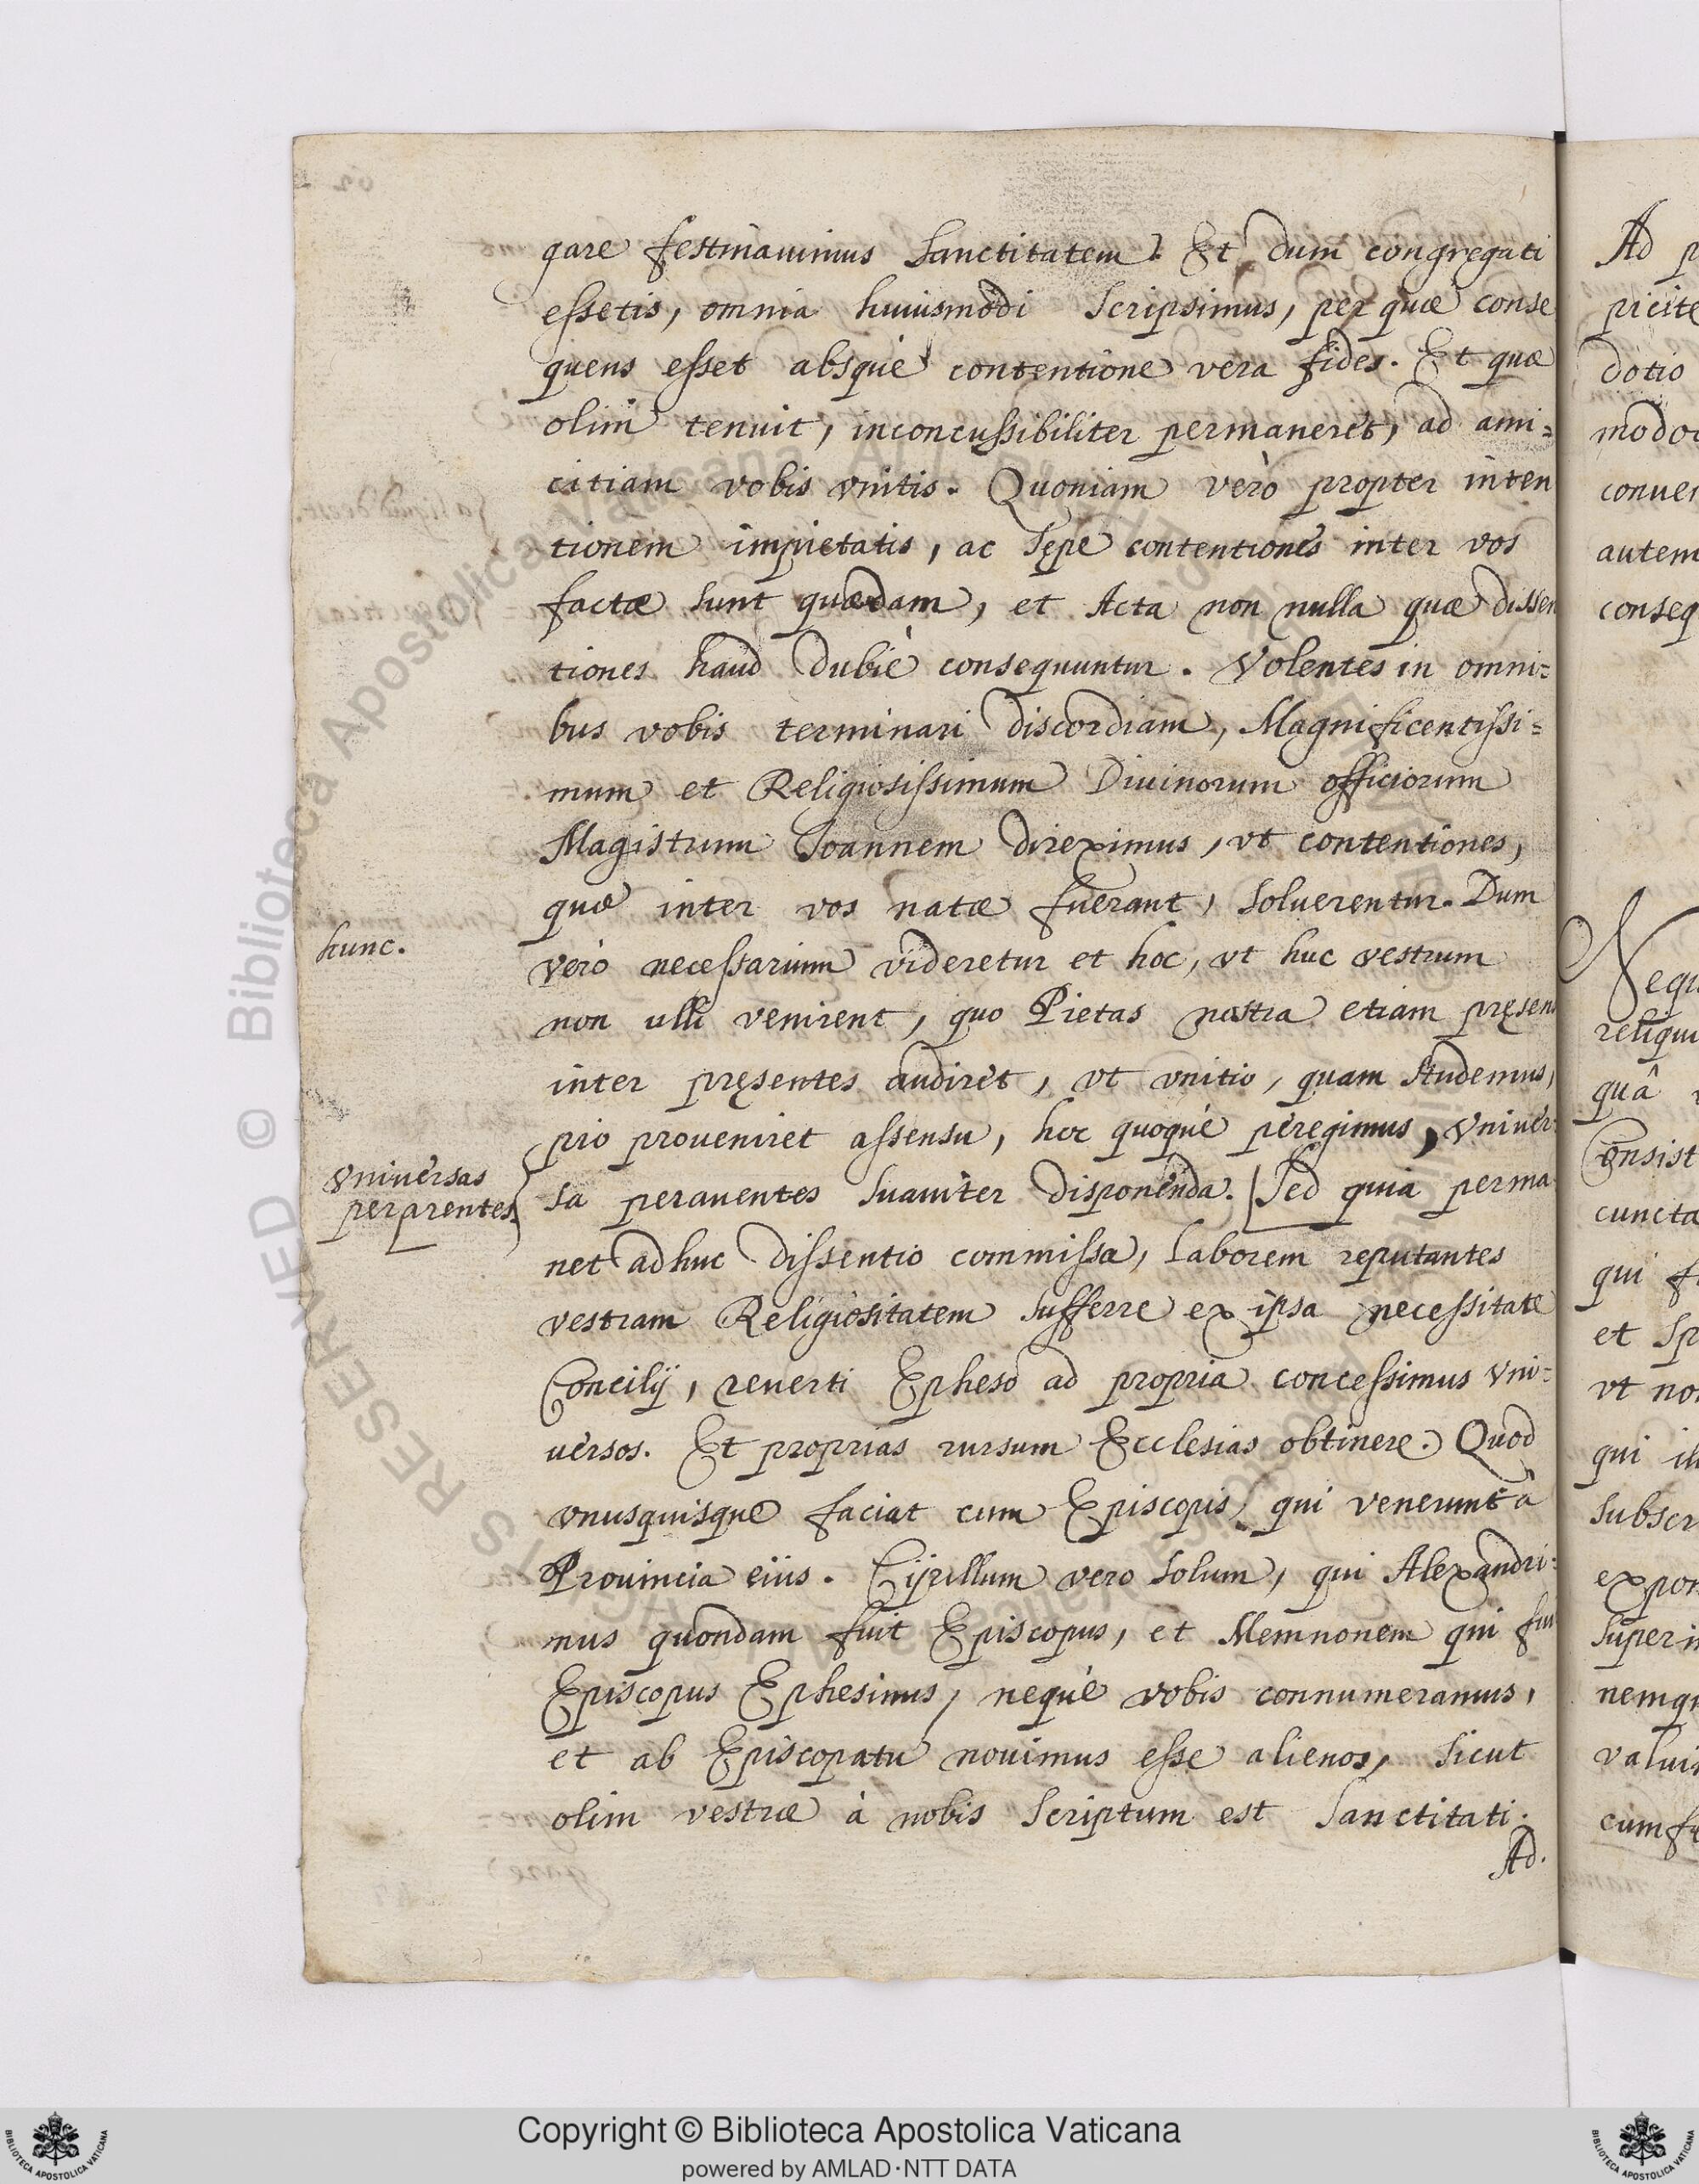 gare festinauimus Sanctitatem. Et dum congregati
essetis, omnia huiusmodi scripsimus, per quæ conse
quens esset absque contentione vera fides. Et quæ
olim tenuit, inconcussibiliter permaneret, ad ami=
citiam vobis vnitis. Quoniam verò propter inten
tionem impietatis, ac sępe contentiones inter vos
factæ sunt quædam, et Acta non nulla quæ dissen
tiones haud dubiè consequuntur. Volentes in omni=
bus vobis terminari discordiam, Magnificentissi=
mum et Religiosissimum Diuinorum officiorum
Magistrum Ioannem direximus, vt contentiones,
quæ inter vos natæ fuerant, soluerentur. Dum
hunc.
verò necessarium videretur et hoc, vt huc vestrum
non ulli venirent, quo Pietas nostra etiam pręsens
inter pręsentes audiret, vt vnitio, quam studemus,
pio proueniret assensu, hoc quoquè peregimus, vniuer
vniuersas
perparentes.
sa perauentes suauiter disponenda. Sed quia perma
net adhuc dissentio commissa, laborem reputantes
vestram Religiositatem sufferre ex ipsa necessitate
Concilij, reuerti Epheso ad propria concessimus vni=
uersos. Et proprias rursum Ecclesias obtinere. Quod
vnusquisque faciat cum Episcopis qui venerunt à
Prouincia eius. Cijrillum vero solum, qui Alexandri=
nus quondam fuit Episcopus, et Memnonem qui fui
Episcopus Ephesinus, nequè vobis connumeramus,
et ab Episcopatu nouimus esse alienos, sicut
olim vestræ à nobis scriptum est Sanctitati.
Ad.
Ad p
picite
dotio
modo
conuer
autem
conseq
Nequ
reliqui
quâ
Consist
cuncta
qui f
et Sp
vt no
qui ill
subscr
expon
super in
nemqu
valui
cum fu
© Biblioteca Apostolica Vaticana ALL RIGHTS RESERVED
Copyright © Biblioteca Apostolica Vaticana
powered by AMLAD·NTT DATA
BIBLIOTECA APOSTOLICA VATICANA
BIBLIOTECA APOSTOLICA VATICANA